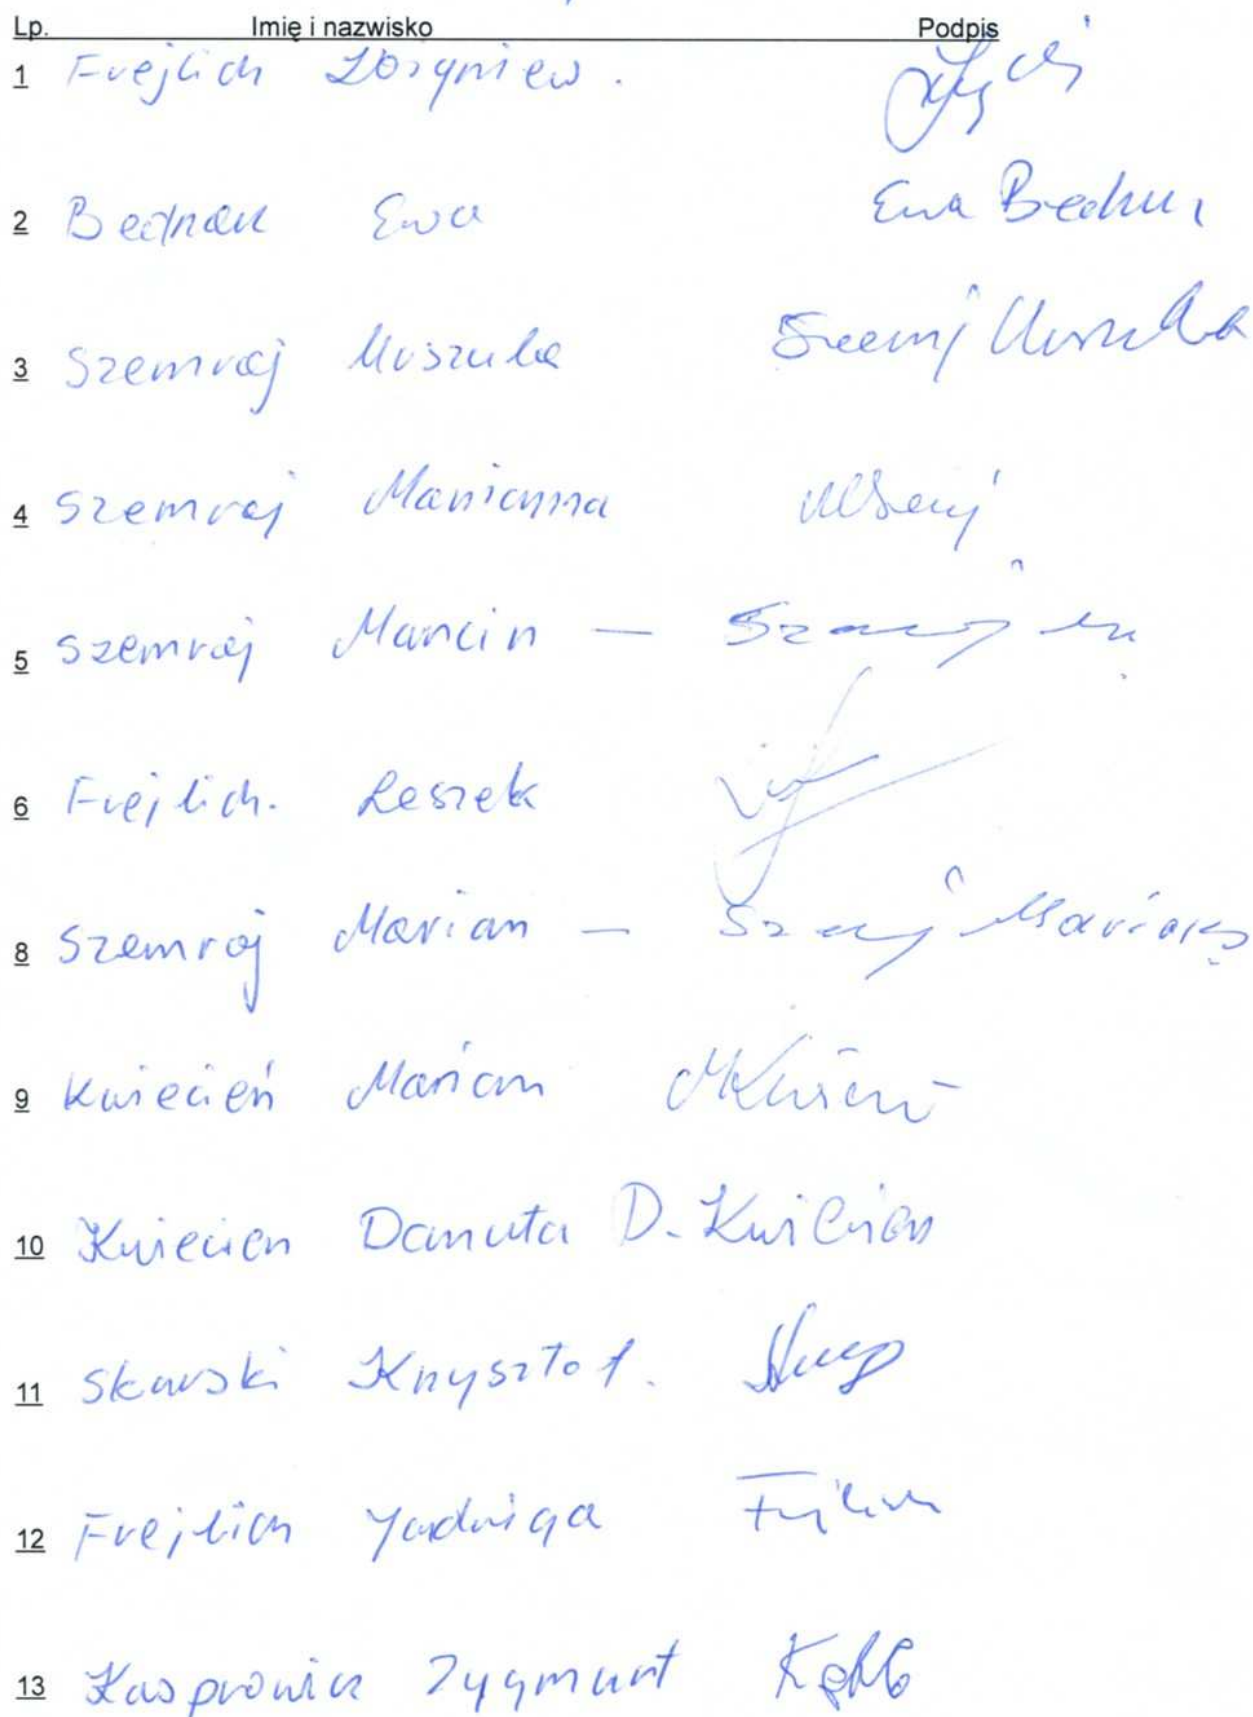 Lp. Imię i nazwisko Podpis
1 Frejlich Zbigniew.
2 Bednarz Ewa Ewa
3 Szemraj Urszula Urszula
4 Szemraj Marianna
5 Szemraj Marcin —
6 Frejlich. Leszek
8 Szemraj Marian — Marian
9 Kwiecień Marian
10 Kwiecien Danuta D. Kwiecien
11 Skarski Krzysztof.
12 Frejlich Jadwiga
13 Kasprowicz Zygmunt